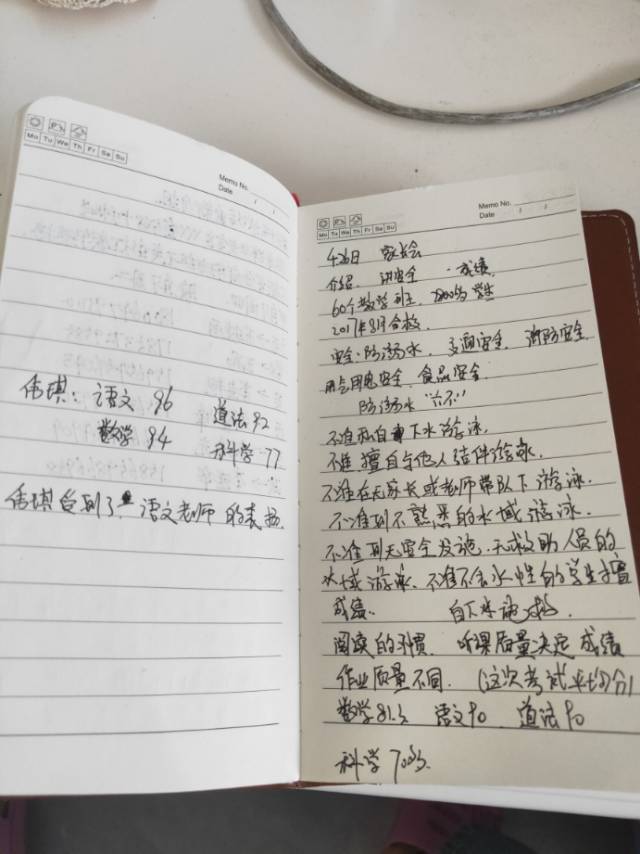 Mo Tu We Th Fr Sa Su
Memo No.
Date / /
伟琪：语文 96 道法 92
数学 94 科学 77
伟琪 得到了 语文老师 的表扬.
Mo Tu We Th Fr Sa Su
Memo No.
Date / /
4.26日 家长会
介绍. 讲安全 . 成绩.
60个教学班 学生
2017年8月合校.
安全：防溺水. 交通安全. 消防安全.
用电安全. 食品安全.
防溺水 “六不”
不准私自下水游泳.
不准擅自与他人结伴游泳.
不准在无家长或老师带队下游泳.
不准到不熟悉的水域游泳.
不准到无安全设施. 无救助人员的
水域游泳. 不准不会水性的学生擅
成绩. 自下水施救.
阅读的习惯. 听课质量决定成绩
作业质量不同. (这次考试平均分)
数学81. 语文90 道法90
科学